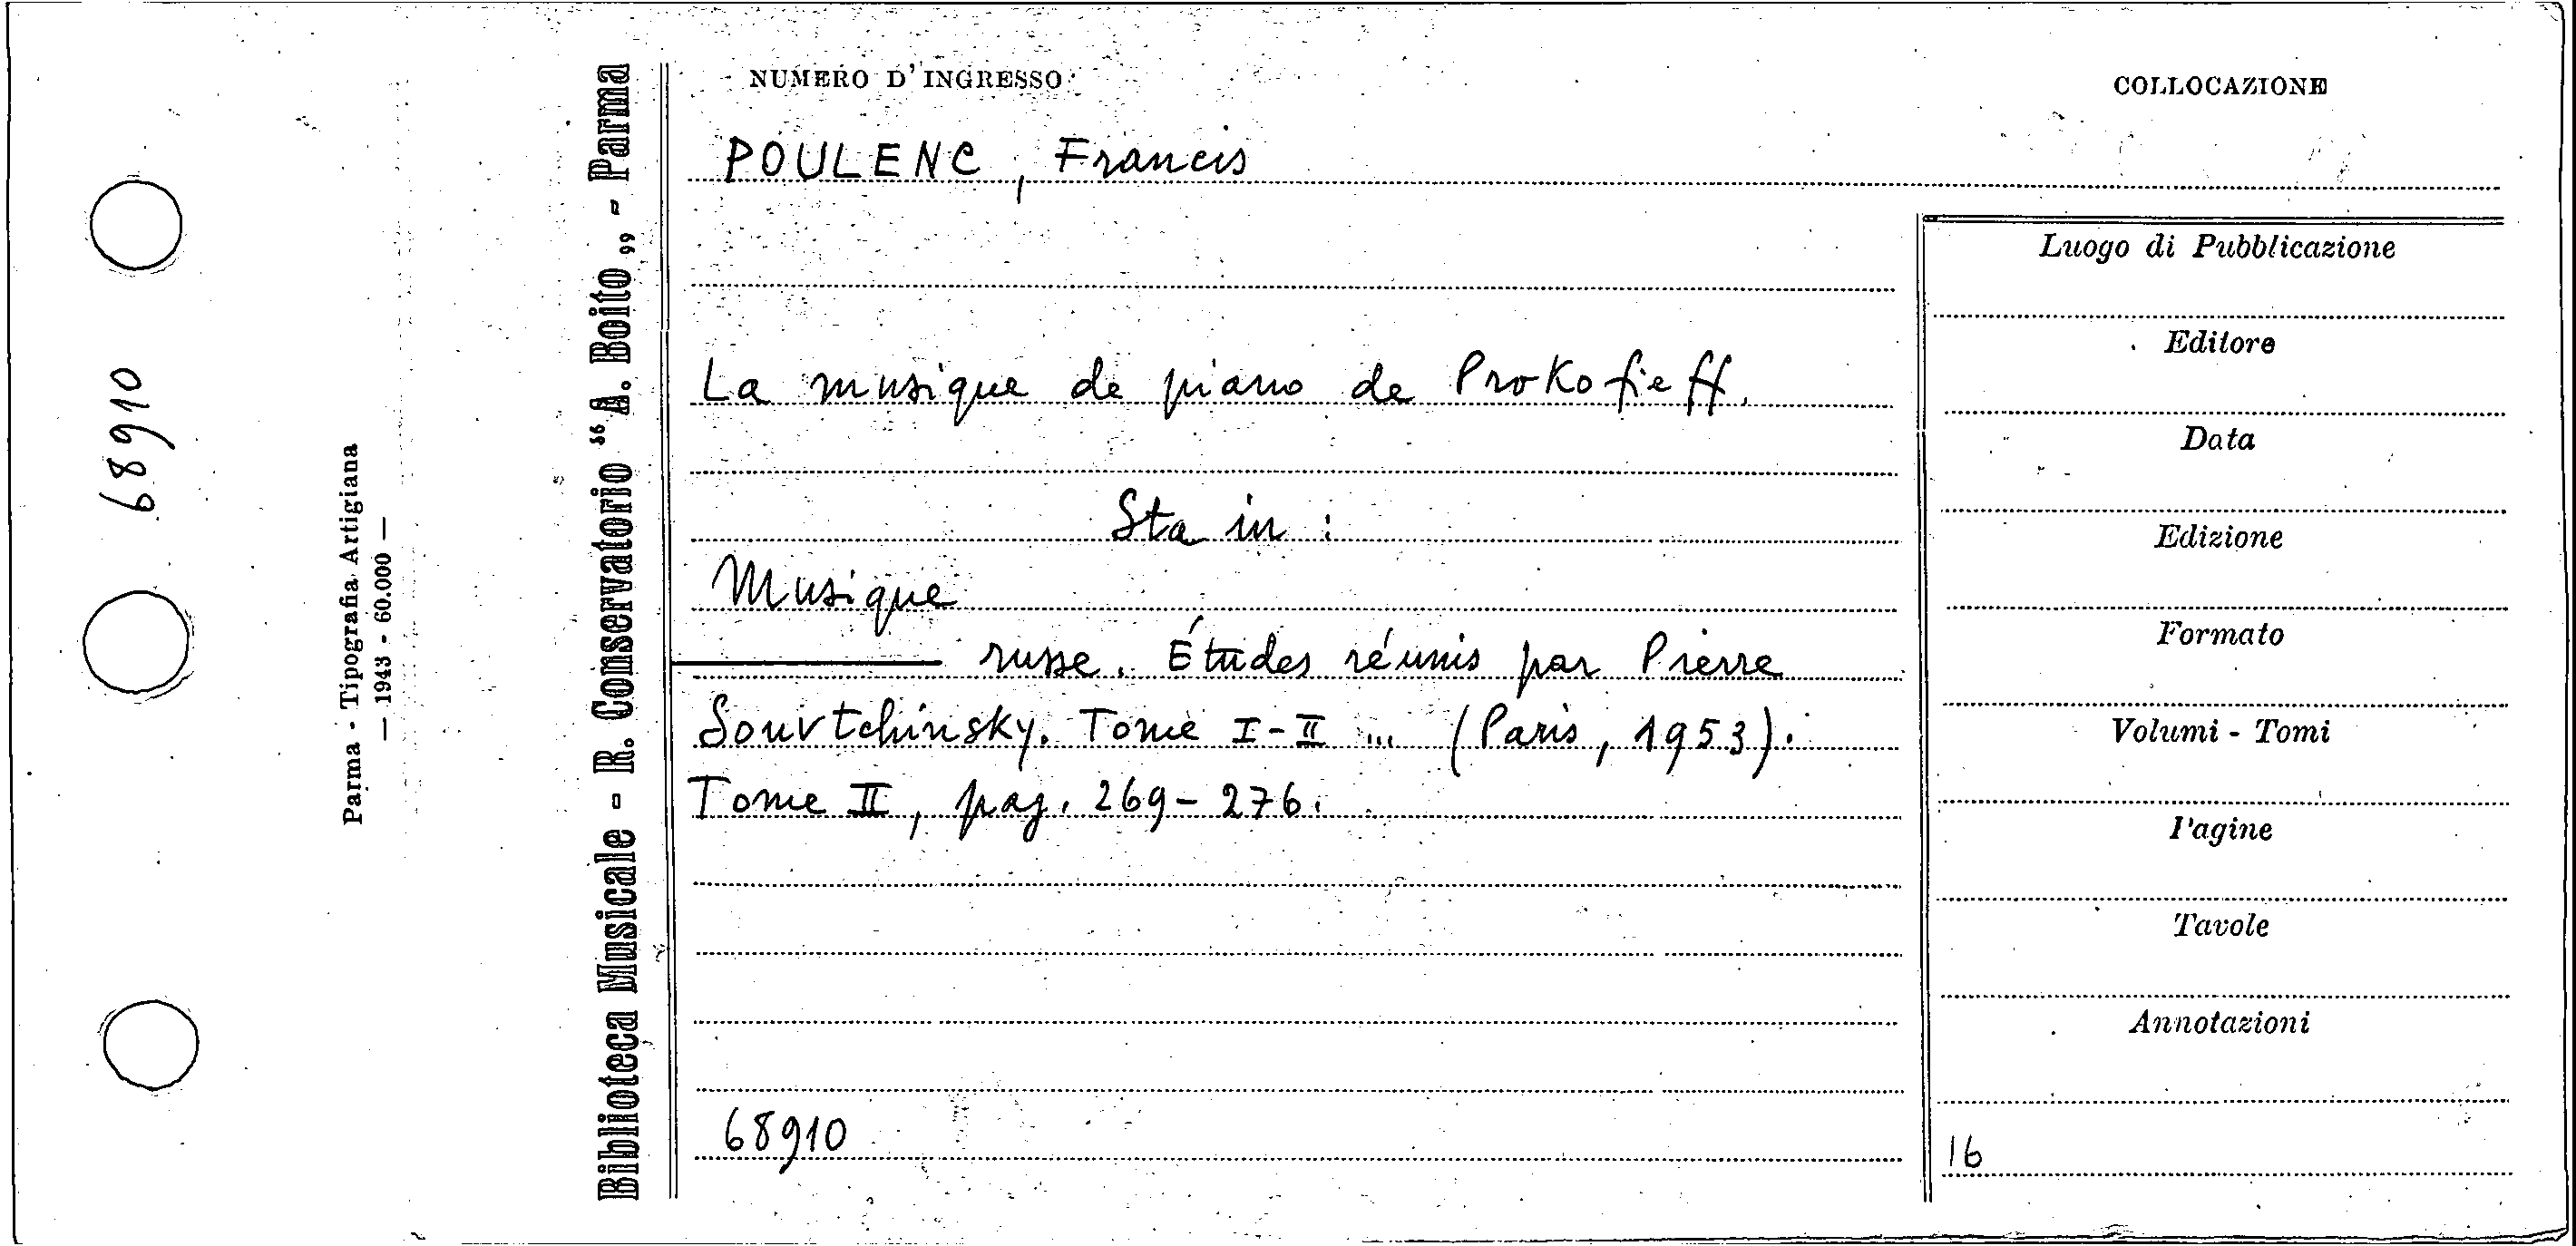 68910
Parma - Tipografia Artigiana
— 1943 - 60.000 —
Biblioteca Musicale - R. Conservatorio "A. Boito„ - Parma
NUMERO D'INGRESSO
COLLOCAZIONE
POULENC, Francis
La musique de piano de Prokofieff.
Sta in :
Musique
russe. Études réunis par Pierre
Souvtchinsky. Tome I-II ... (Paris, 1953).
Tome II, pag. 269-276.
68910
Luogo di Pubblicazione
Editore
Data
Edizione
Formato
Volumi - Tomi
Pagine
Tavole
Annotazioni
16